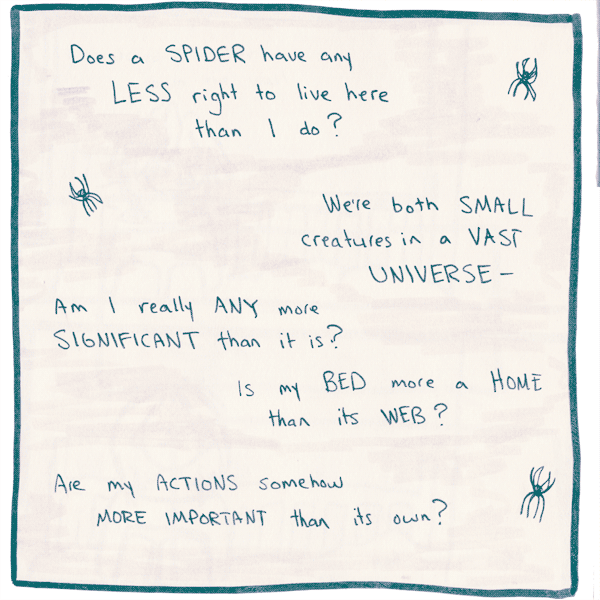 Does a SPIDER have any
LESS right to live here
than I do?
We're both SMALL
creatures in a VAST
UNIVERSE-
Am I really ANY more
SIGNIFICANT than it is?
Is my BED more a HOME
than its WEB?
Are my ACTIONS somehow
MORE IMPORTANT than its own?